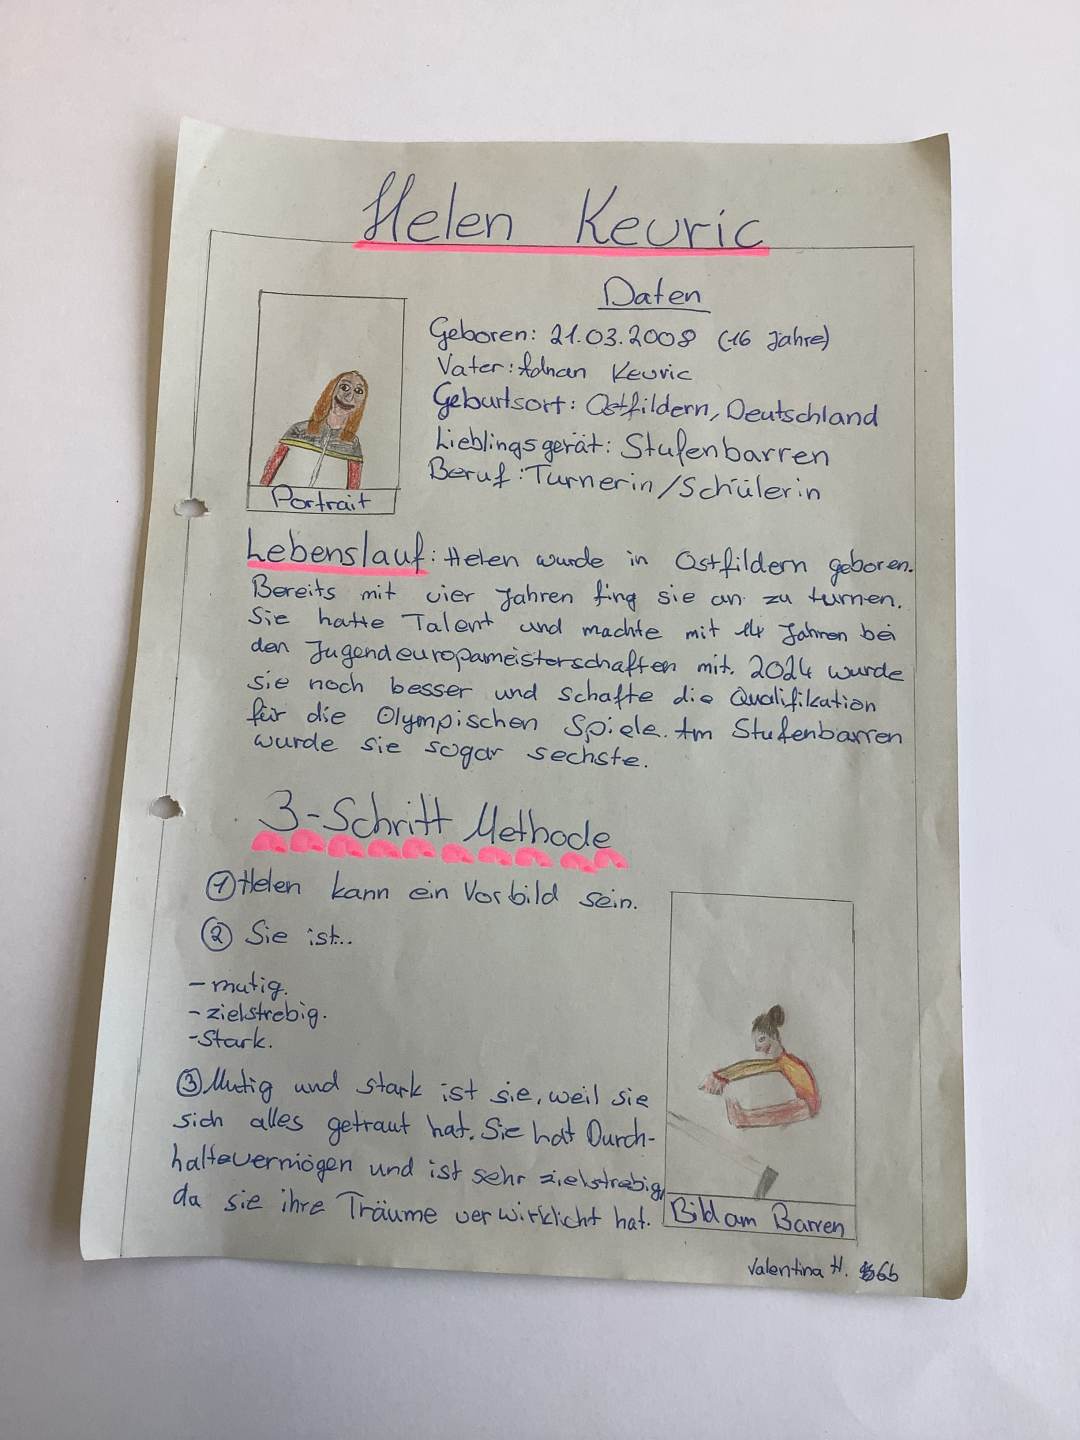 Helen Kevric
Daten
Geboren: 21.03.2008 (16 Jahre)
Vater: Adnan Kevric
Geburtsort: Ostfildern, Deutschland
Lieblingsgerät: Stufenbarren
Beruf: Turnerin/Schülerin
Portrait
Lebenslauf: Helen wurde in Ostfildern geboren.
Bereits mit vier Jahren fing sie an zu turnen.
Sie hatte Talent und machte mit 14 Jahren bei
den Jugendeuropameisterschaften mit. 2024 wurde
sie noch besser und schafte die Qualifikation
für die Olympischen Spiele. Am Stufenbarren
wurde sie sogar sechste.
3-Schritt Methode
① Helen kann ein Vorbild sein.
② Sie ist...
- mutig.
- zielstrebig.
- Stark.
③ Mutig und stark ist sie, weil sie
sich alles getraut hat. Sie hat Durch-
haltevermögen und ist sehr zielstrebig,
da sie ihre Träume verwirklicht hat.
Bild am Barren
Valentina H. 6b